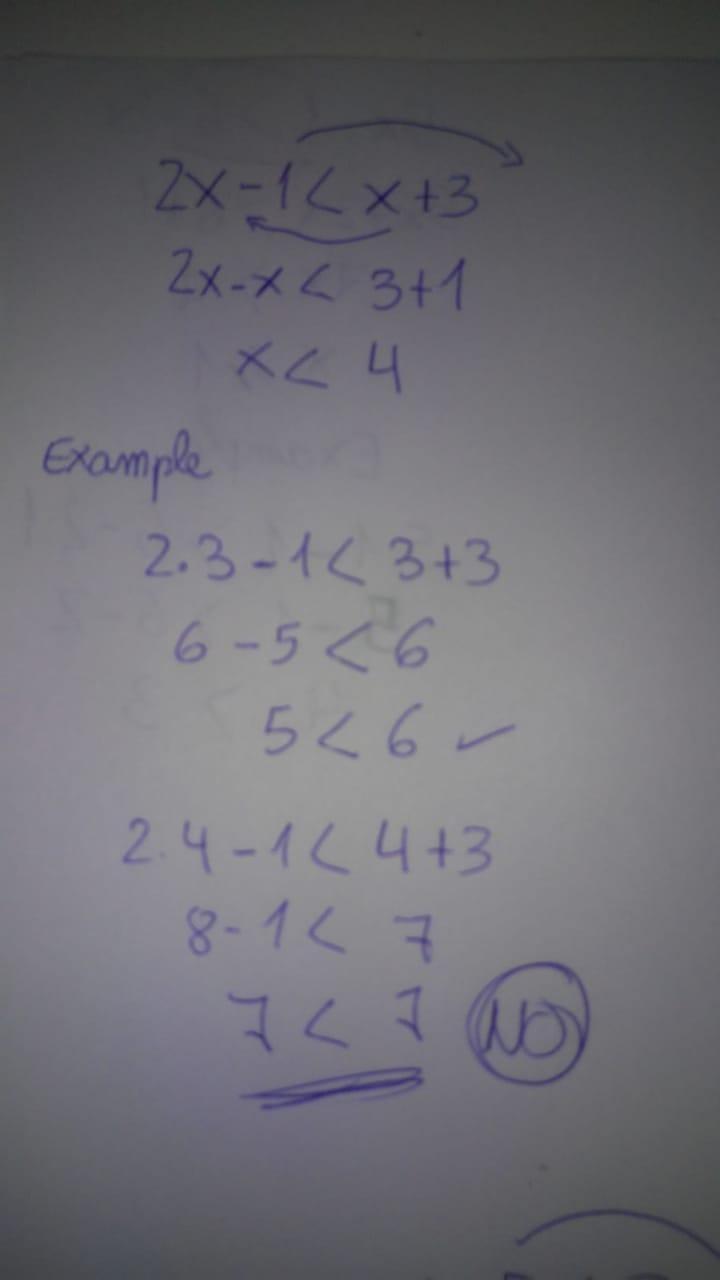 2x-1< x+3
2x-x< 3+1
x< 4
Example
2.3-1< 3+3
6-5< 6
5< 6 ✓
2.4-1< 4+3
8-1< 7
7< 7 NO